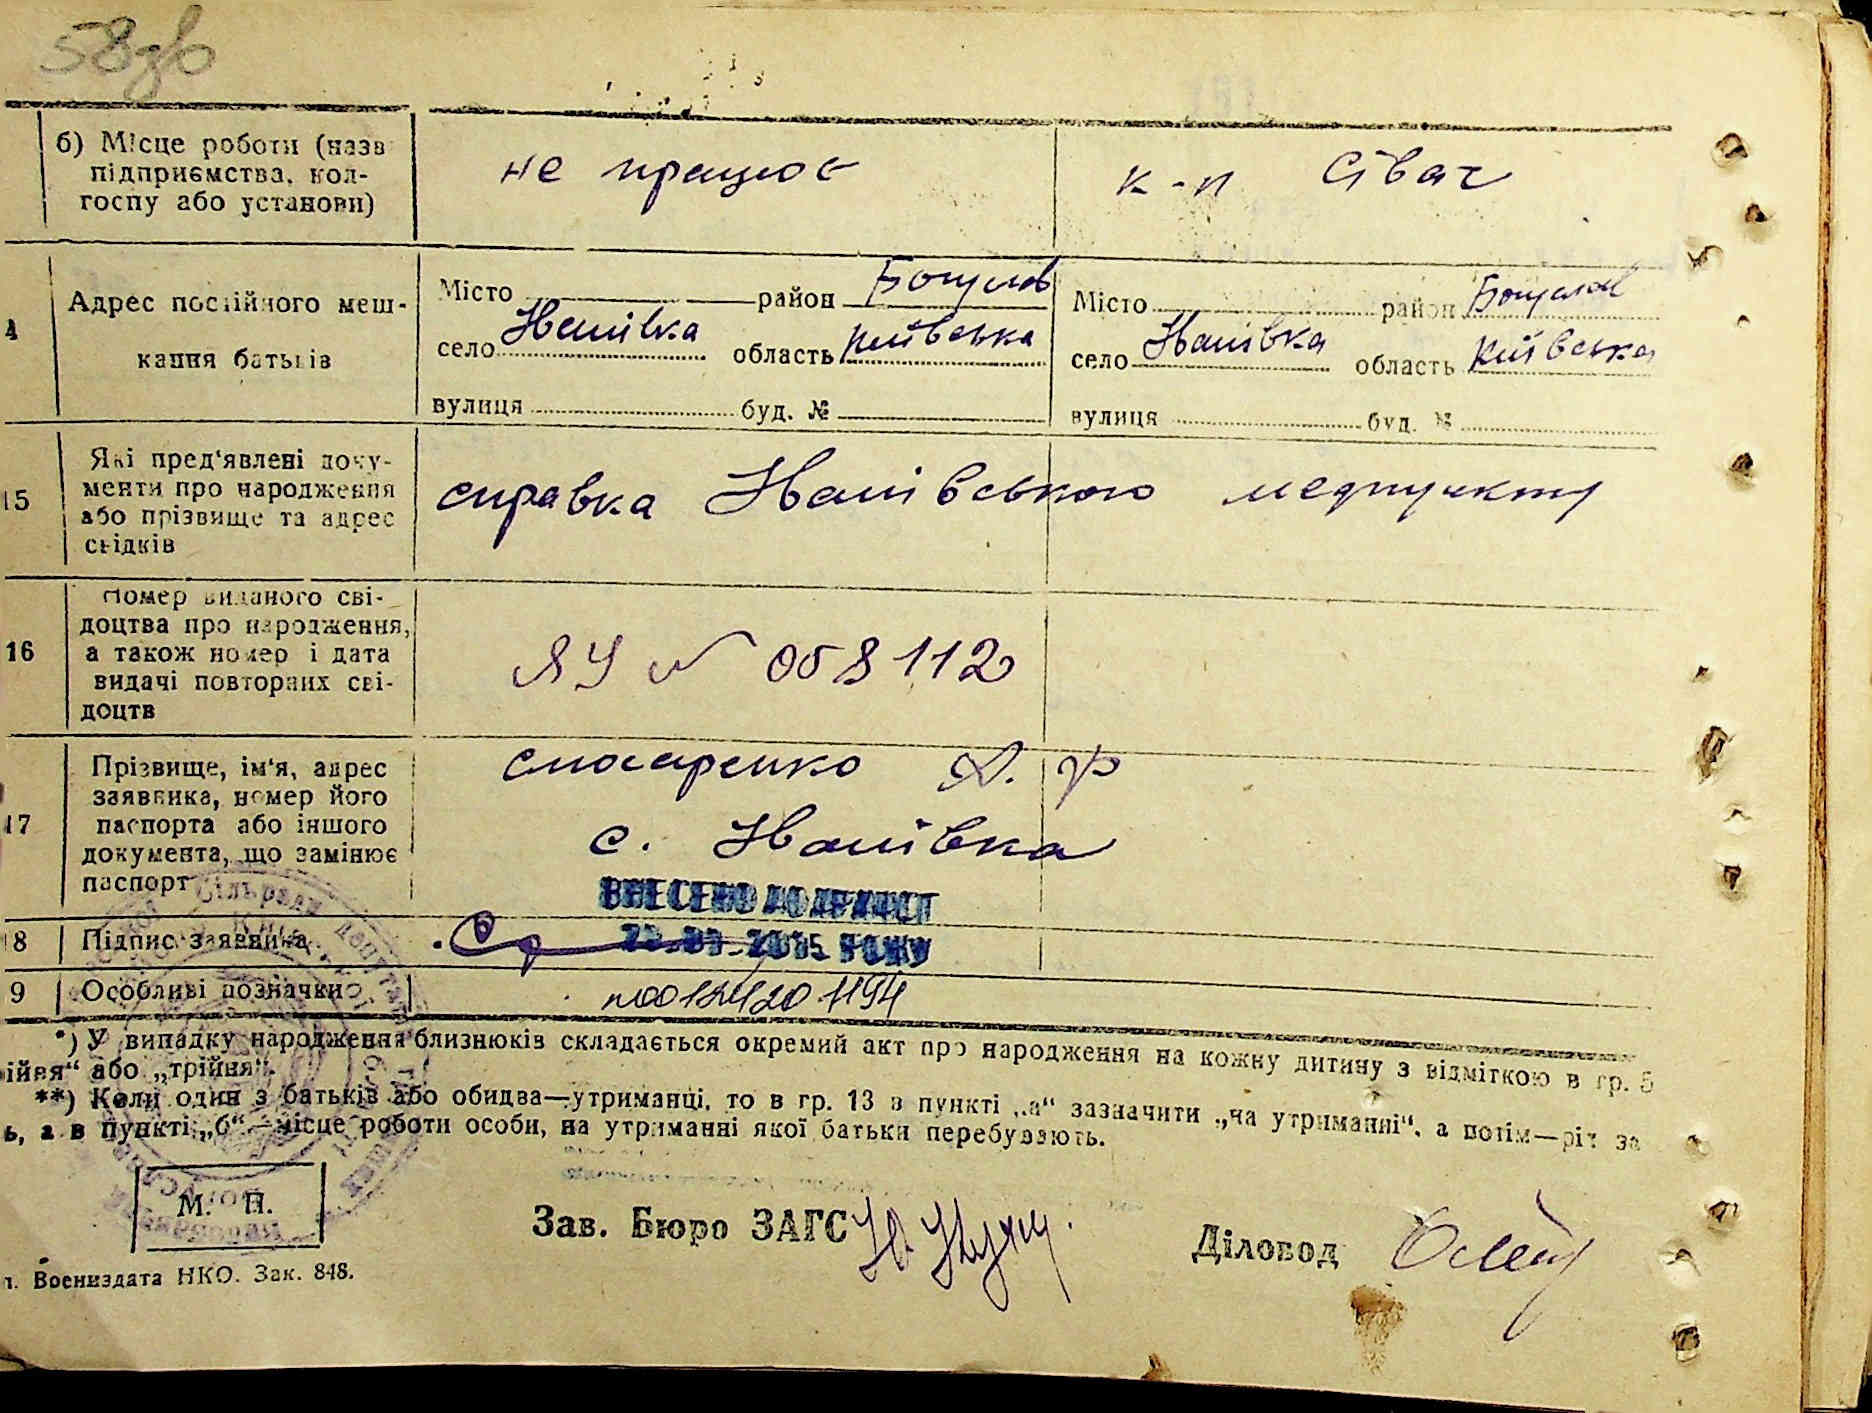 58зв
б) Місце роботи (назв
підприємства, кол-
госпу або установи)
не працює
к-п Сівач
4
Адрес постійного меш-
кання батьків
Місто район Богуслав
село Іванівка область Київська
вулиця буд. №
Місто район Богуслав
село Іванівка область Київська
вулиця буд. №
15
Які пред'явлені доку-
менти про народження
або прізвище та адрес
свідків
справка Іванівського медпункту
16
Номер виданого сві-
доцтва про народження,
а також номер і дата
видачі повторних сві-
доцтв
ЯУ № 058112
17
Прізвище, ім'я, адрес
заявника, номер його
паспорта або іншого
документа, що замінює
паспорт
Слюсаренко
с. Іванівка
ВНЕСЕНО ДО ДРАЦСГ
2015 РОКУ
18
Підпис заявника
9
Особливі позначки
*) У випадку народження близнюків складається окремий акт про народження на кожну дитину з відміткою в гр. 5
ійня“ або „трійня“.
**) Коли один з батьків або обидва—утриманці, то в гр. 13 в пункті „а“ зазначити „на утриманні“, а потім—рід за
ь, а в пункті „б“—місце роботи особи, на утриманні якої батьки перебувають.
М. П.
Зав. Бюро ЗАГС
Діловод
п. Воениздата НКО. Зак. 848.